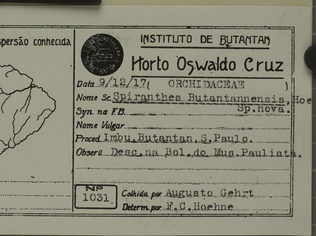 persão conhecida
INSTITUTO DE BUTANTAN
Horto Oswaldo Cruz
Data 9/12/17( ORCHIDACEAE )
Nome Sc. Spiranthes Butantannensis, Hoe
Syn. na F.B. Sp.nova.
Nome Vulgar
Proced. Imbu, Butantan, S. Paulo.
Observ. Desc.na Bol.do Mus.Paulista.
Nº
1031
Colhida por Augusto Gehrt
Determ. por F.C.Hoehne